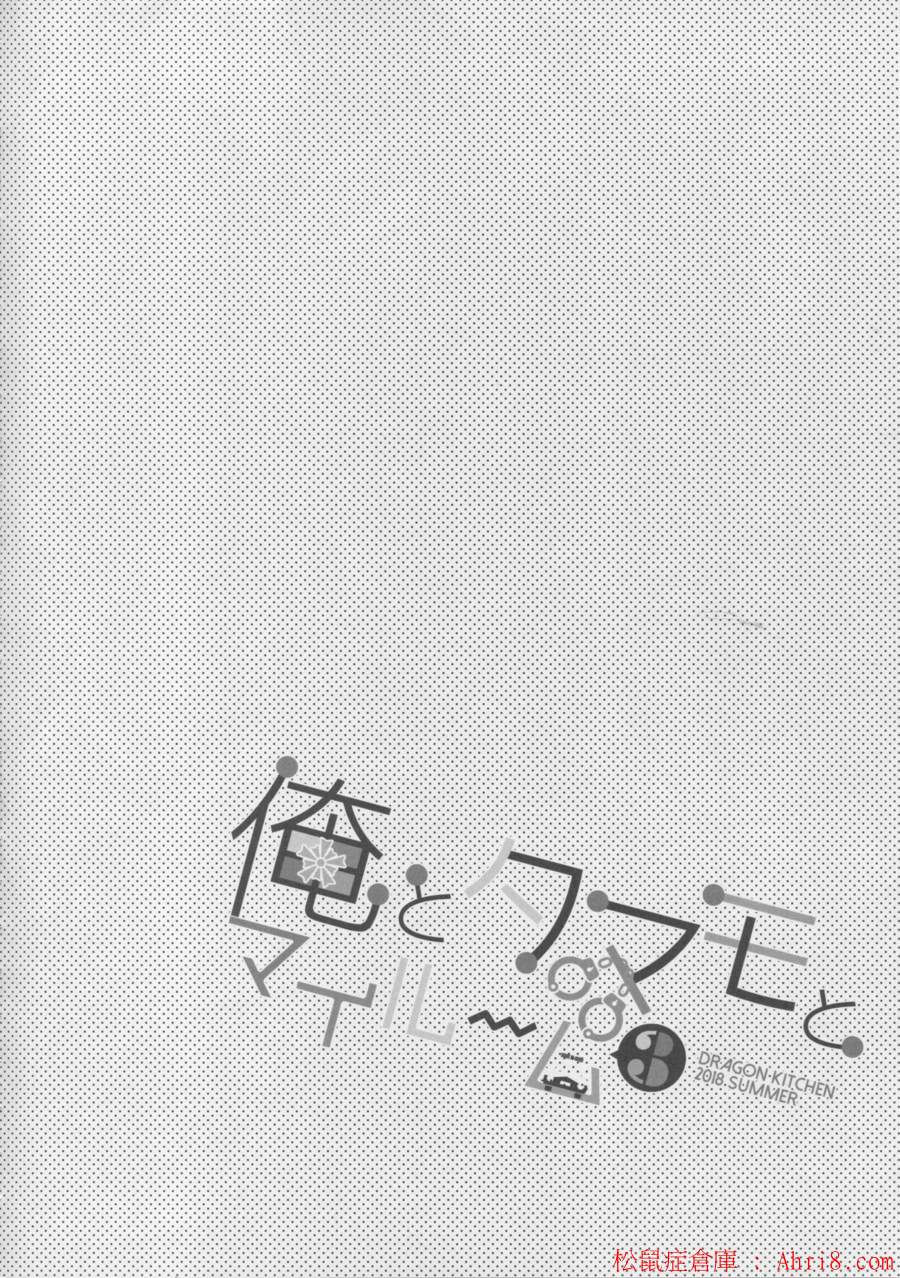 俺とタマモと
マイルーム3
DRAGON KITCHEN
2018 SUMMER
松鼠症倉庫 : Ahri8.com